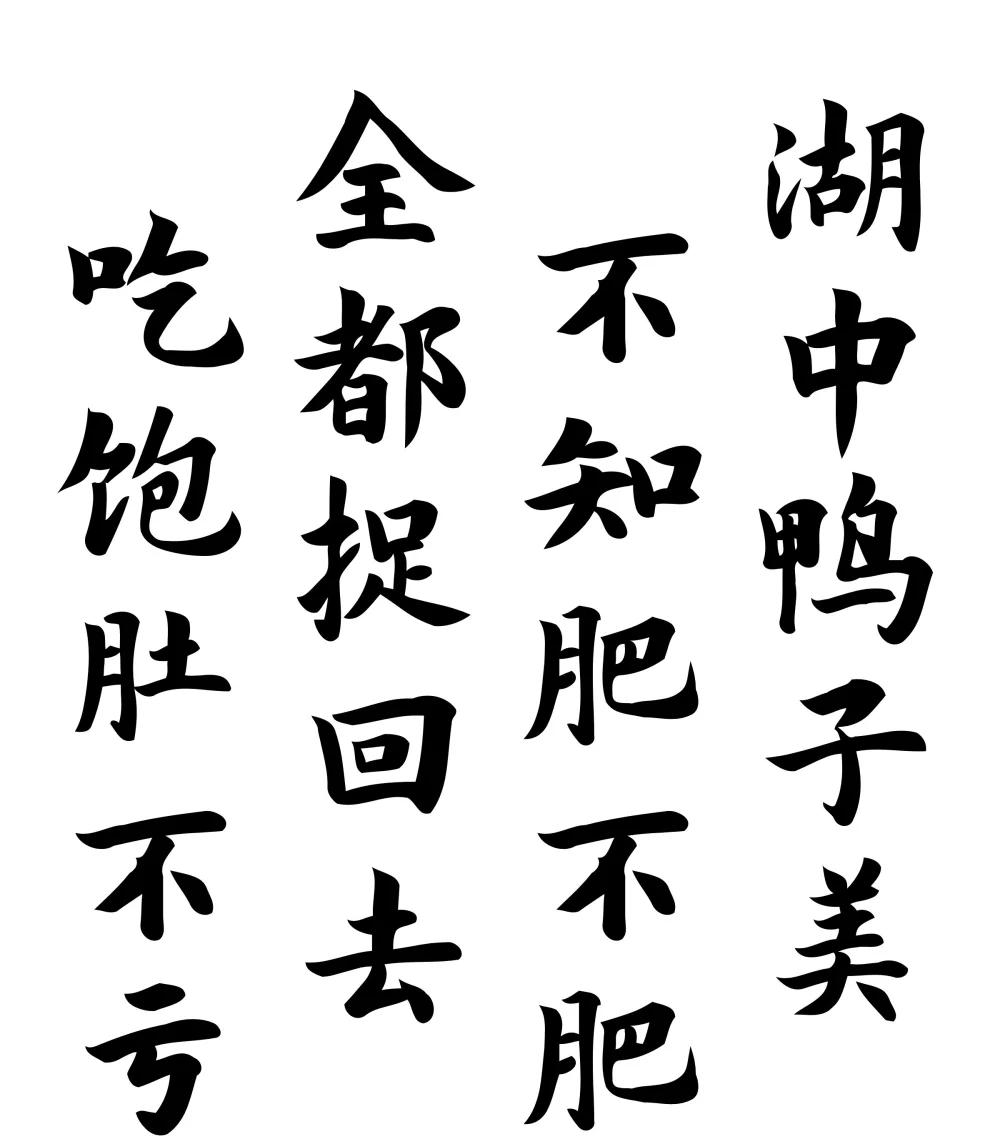 湖中鸭子美
不知肥不肥
全都捉回去
吃饱肚不亏